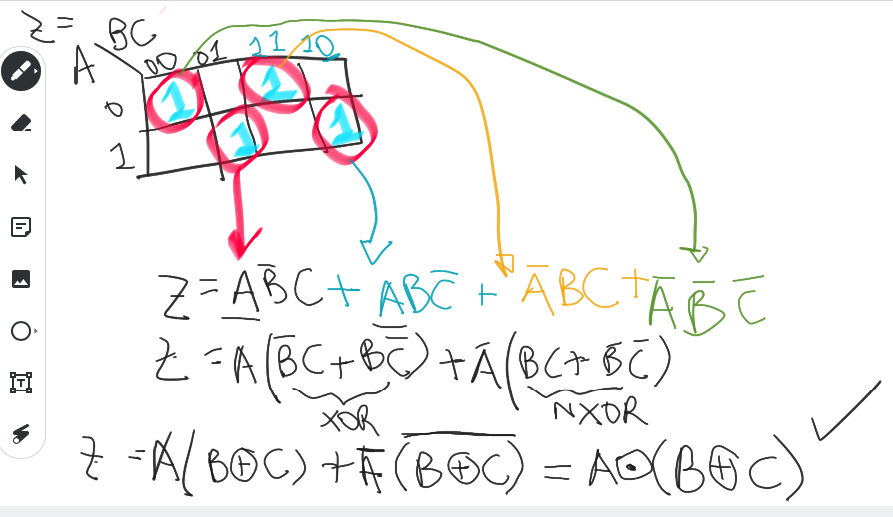 Z = BC
A 00 01 11 10
0 1 1
1 1 1
Z = AB̅C + ABC̅ + A̅BC + A̅ B̅ C̅
Z = A(B̅C + BC̅) + A̅(BC + B̅C̅)
XOR NXOR
Z = A(B⊕C) + A̅(B⊕C)̅ = A⊙(B⊕C) ✓
T